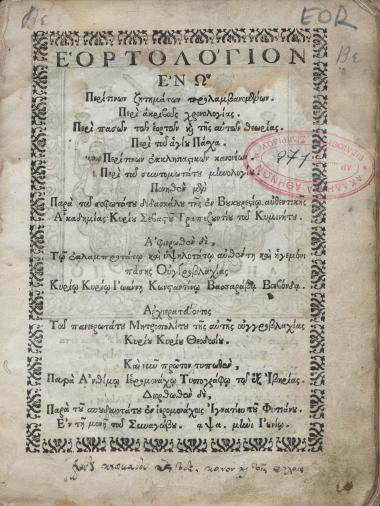 EOR
ΕΟΡΤΟΛΟΓΙΟΝ
ἘΝ Ὧ
Περί τινων ζητημάτων προλαμβανομένων.
Περὶ ἀκριβοῦς χρονολογίας.
Περὶ πασῶν τῶν ἑορτῶν κỳ τῆς αὐτῶν θεωρίας.
Περὶ τοῦ ἁγίου Πάσχα.
Περί τινων ἐκκλησιαστικῶν κανονίων.
Περὶ τοῦ συντομωτάτου μηνολογίου.
Πονηθὲν μὲν
Παρὰ τοῦ σοφωτάτου διδασκάλου τῆς ἐν Βουκουρεστίῳ αὐθεντικῆς
Ἀκαδημίας Κυρίου Σεβαστοῦ Τραπεζουντίου τοῦ Κυμινήτου.
Ἀφιερωθὲν δὲ,
Τῷ ἐκλαμπροτάτῳ καὶ ὑψηλοτάτῳ αὐθέντῃ καὶ ἡγεμόνι
πάσης Οὐγγροβλαχίας
Κυρίῳ Κυρίῳ Ἰωάννῃ Κωνσταντίνῳ Βασσαράβᾳ Βοεβόνδᾳ.
Ἀρχιερατεύοντος
Τοῦ πανιερωτάτου Μητροπολίτου τῆς αὐτῆς οὐγγροβλαχίας
Κυρίου Κυρίου Θεοδοσίου.
Καὶ νῦν πρῶτον τυπωθὲν,
Παρὰ Ἀνθίμου Ἱερομονάχου Τυπογράφου τοῦ ἐξ Ἰβηρίας.
Διορθωθὲν δὲ,
Παρὰ τοῦ σπουδαιοτάτου ἐν ἱερομονάχοις Ἰγνατίου τοῦ Φυτιάνου.
Ἐν τῇ μονῇ τοῦ Συναγώβου. αψα. μηνὶ Ἰουνίῳ.
977